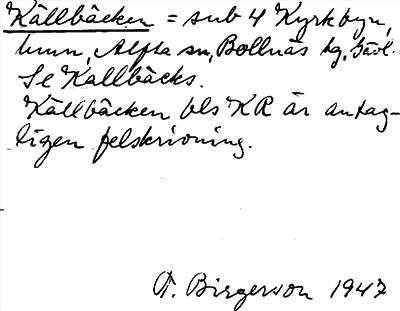 Källbäcken = sub 4 Kyrkbyn,
hmn, Alfta sn, Bollnäs tg, Gävl.
Se Källbäcks.
Källbäcken bls KR är antag-
ligen felskrivning.
T. Birgerson 1947